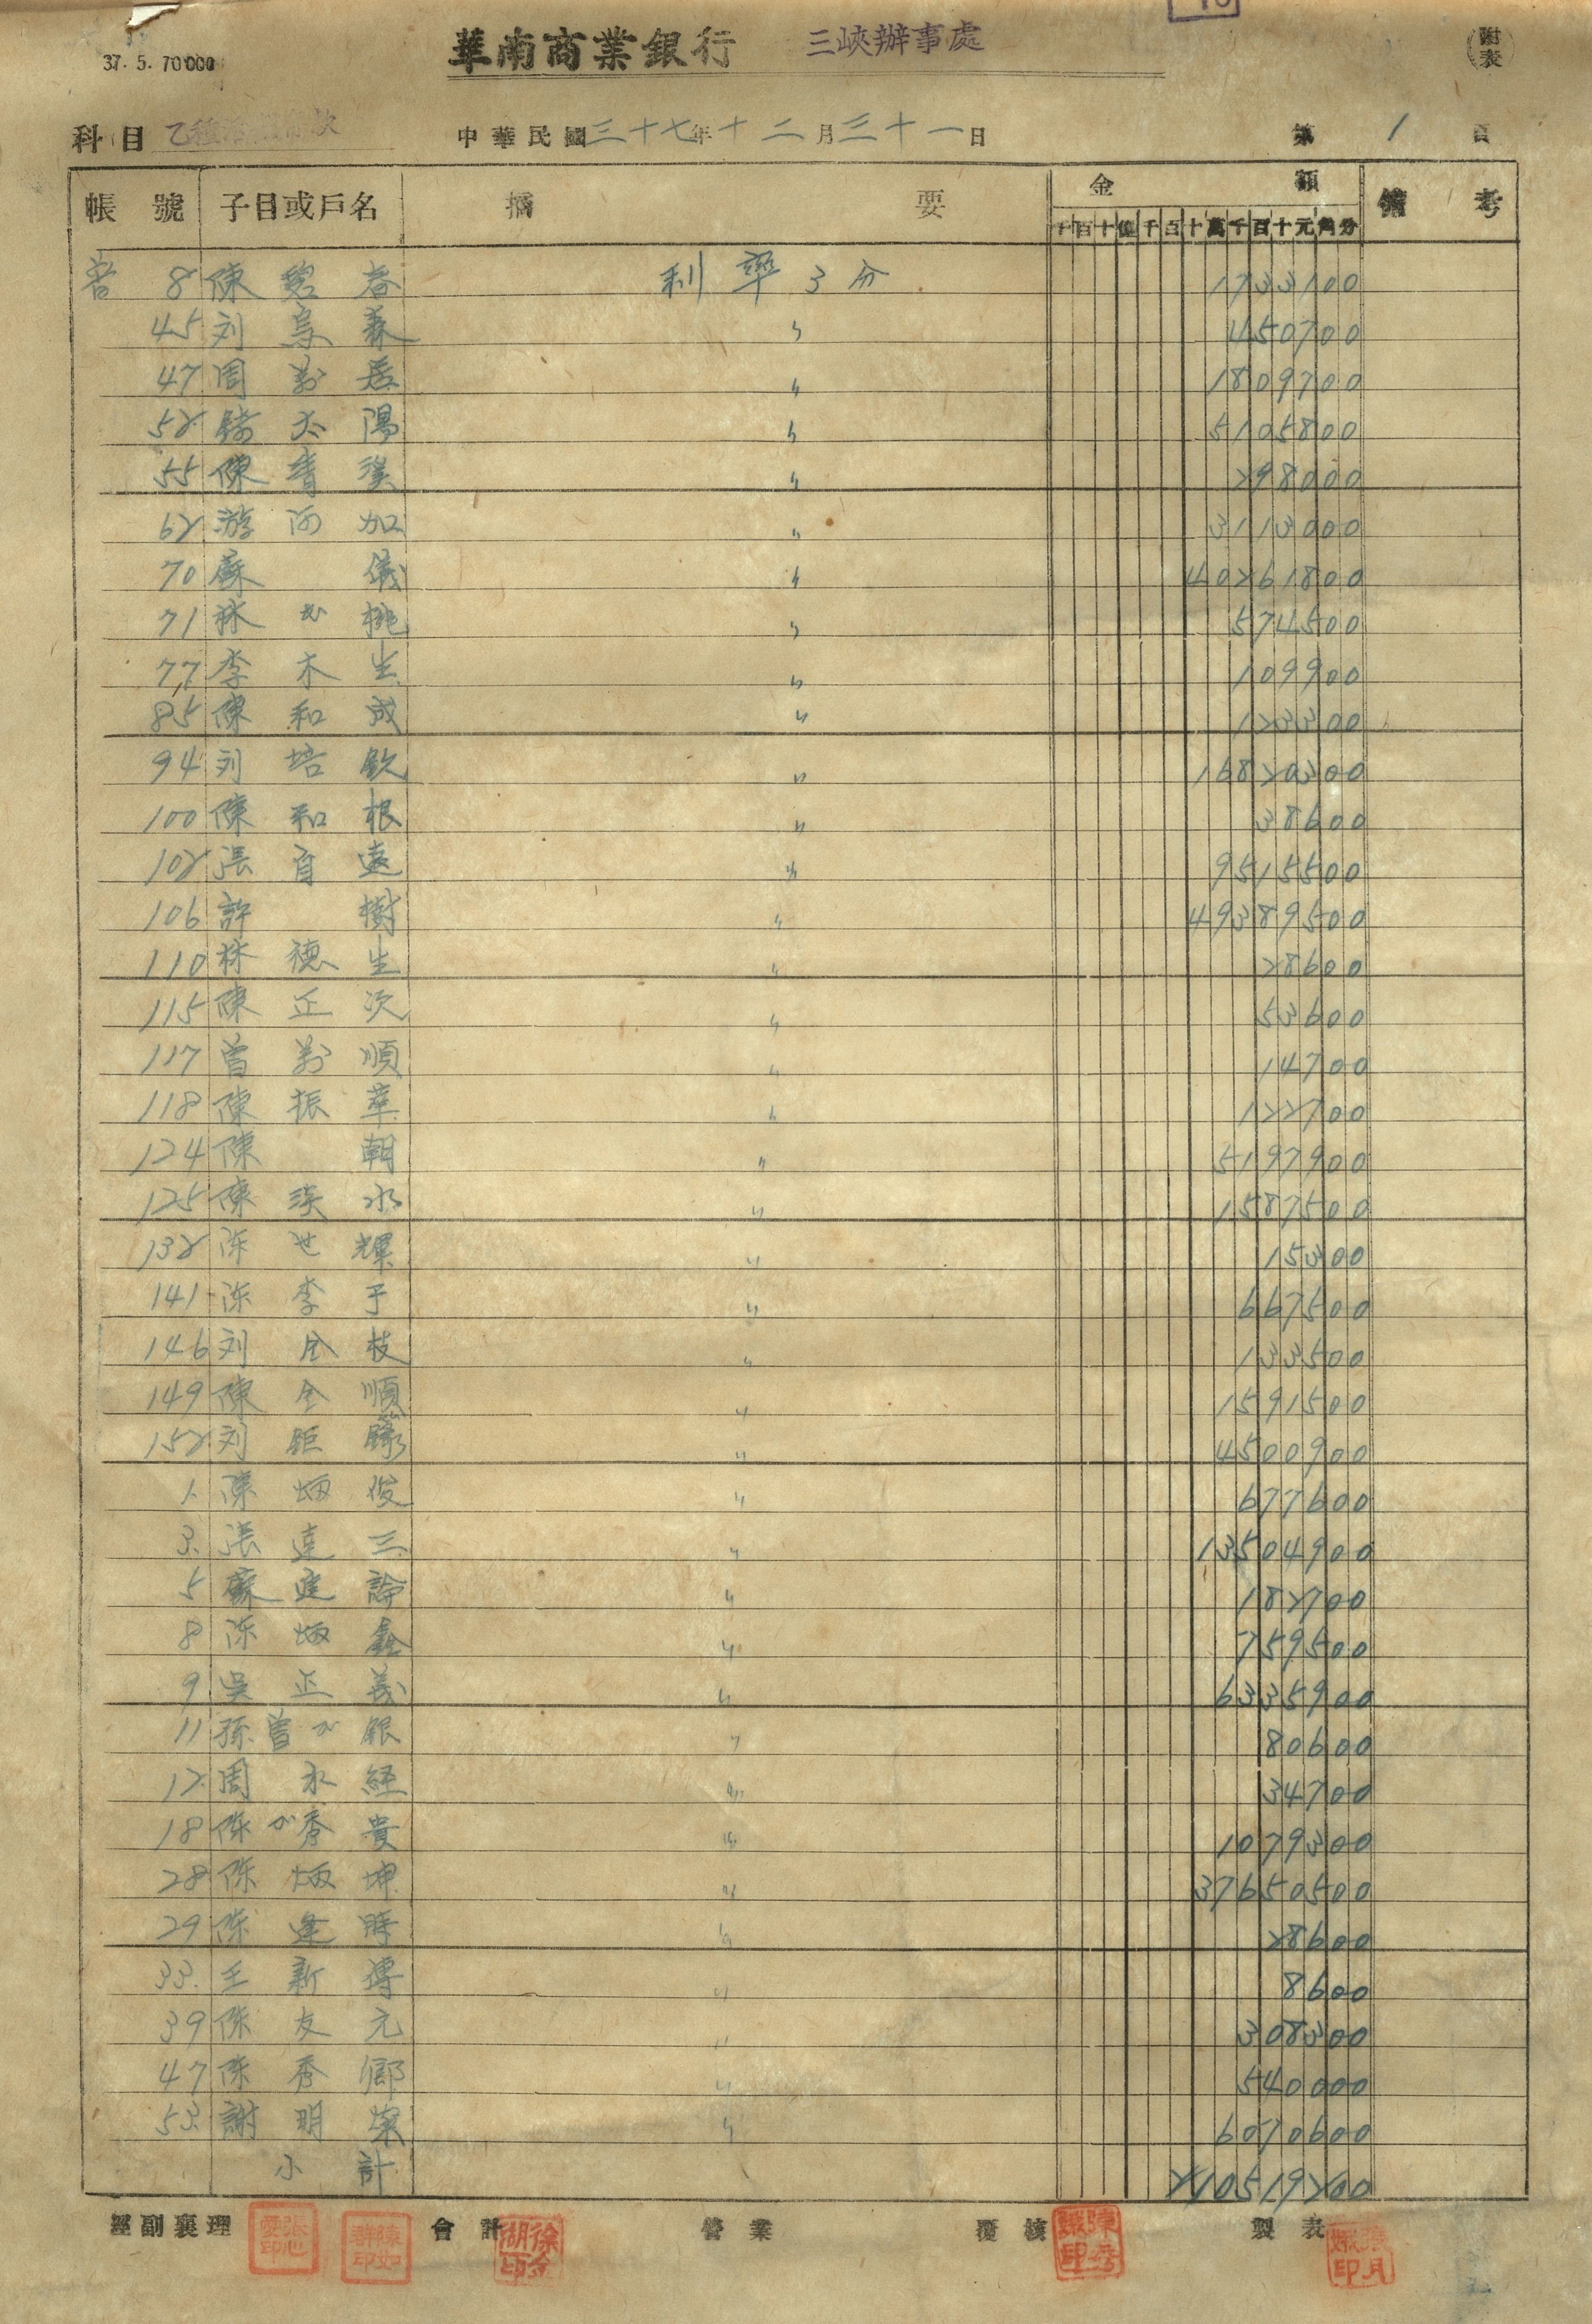 37. 5. 70000
華南商業銀行 三峽辦事處
(附表)
科目 乙種活期存款 中華民國三十七年十二月三十一日 第1頁
帳號 子目或戶名 摘要 金額 備考
千百十億千百十萬千百十元角分
8 陳碧春 利率3分 1733100
45 刘烏森 〃 450700
47 周萬居 〃 1809700
52 太陽 〃 5105800
55 陳清溪 〃 298000
62 游阿加 〃 3113000
70 蘇儀 〃 40261800
71 林 桃 〃 574500
77 李木生 〃 109900
85 陳和成 〃 123300
94 刘培欽 〃 16820300
100 陳和根 〃 38600
102 張自遠 〃 9515500
106 許樹 〃 49389500
110 林德生 〃 28600
115 陳正次 〃 53600
117 曾萬順 〃 14700
118 陳振華 〃 122700
124 陳朝 〃 5197900
125 陳渓水 〃 1587500
132 陈世輝 〃 15300
141 陈李子 〃 667500
146 刘金枝 〃 133500
149 陳全順 〃 1591500
152 刘鉅錄 〃 4500900
1. 陳炳俊 〃 677600
3. 張達三 〃 13504900
5 蘇建論 〃 182700
8 陈炳鑫 〃 759500
9 吳正義 〃 6335900
11 孫曾 銀 〃 80600
12. 周永経 〃 34700
18 陈 秀貴 〃 1079300
28 陈炳坤 〃 37650500
29 陈逢時 〃 28600
33. 王新傳 〃 8600
39 陈友元 〃 308300
47 陈秀鄉 〃 540000
53. 謝明燦 〃 6070600
小計 210519200
經副襄理 會計 營業 覆核 製表